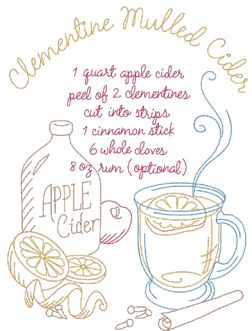 Clementine Mulled Cider
1 quart apple cider
peel of 2 clementines
cut into strips
1 cinnamon stick
6 whole cloves
8 oz rum (optional)
APPLE
Cider